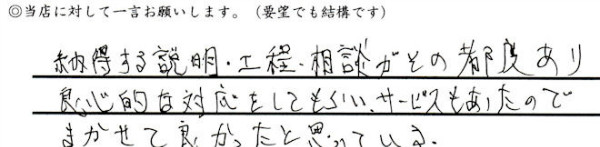 ◎当店に対して一言お願いします。（要望でも結構です）
納得する説明・工程・相談がその都度あり
良心的な対応をしてもらい、サービスもあったので
まかせて良かったと思っている。